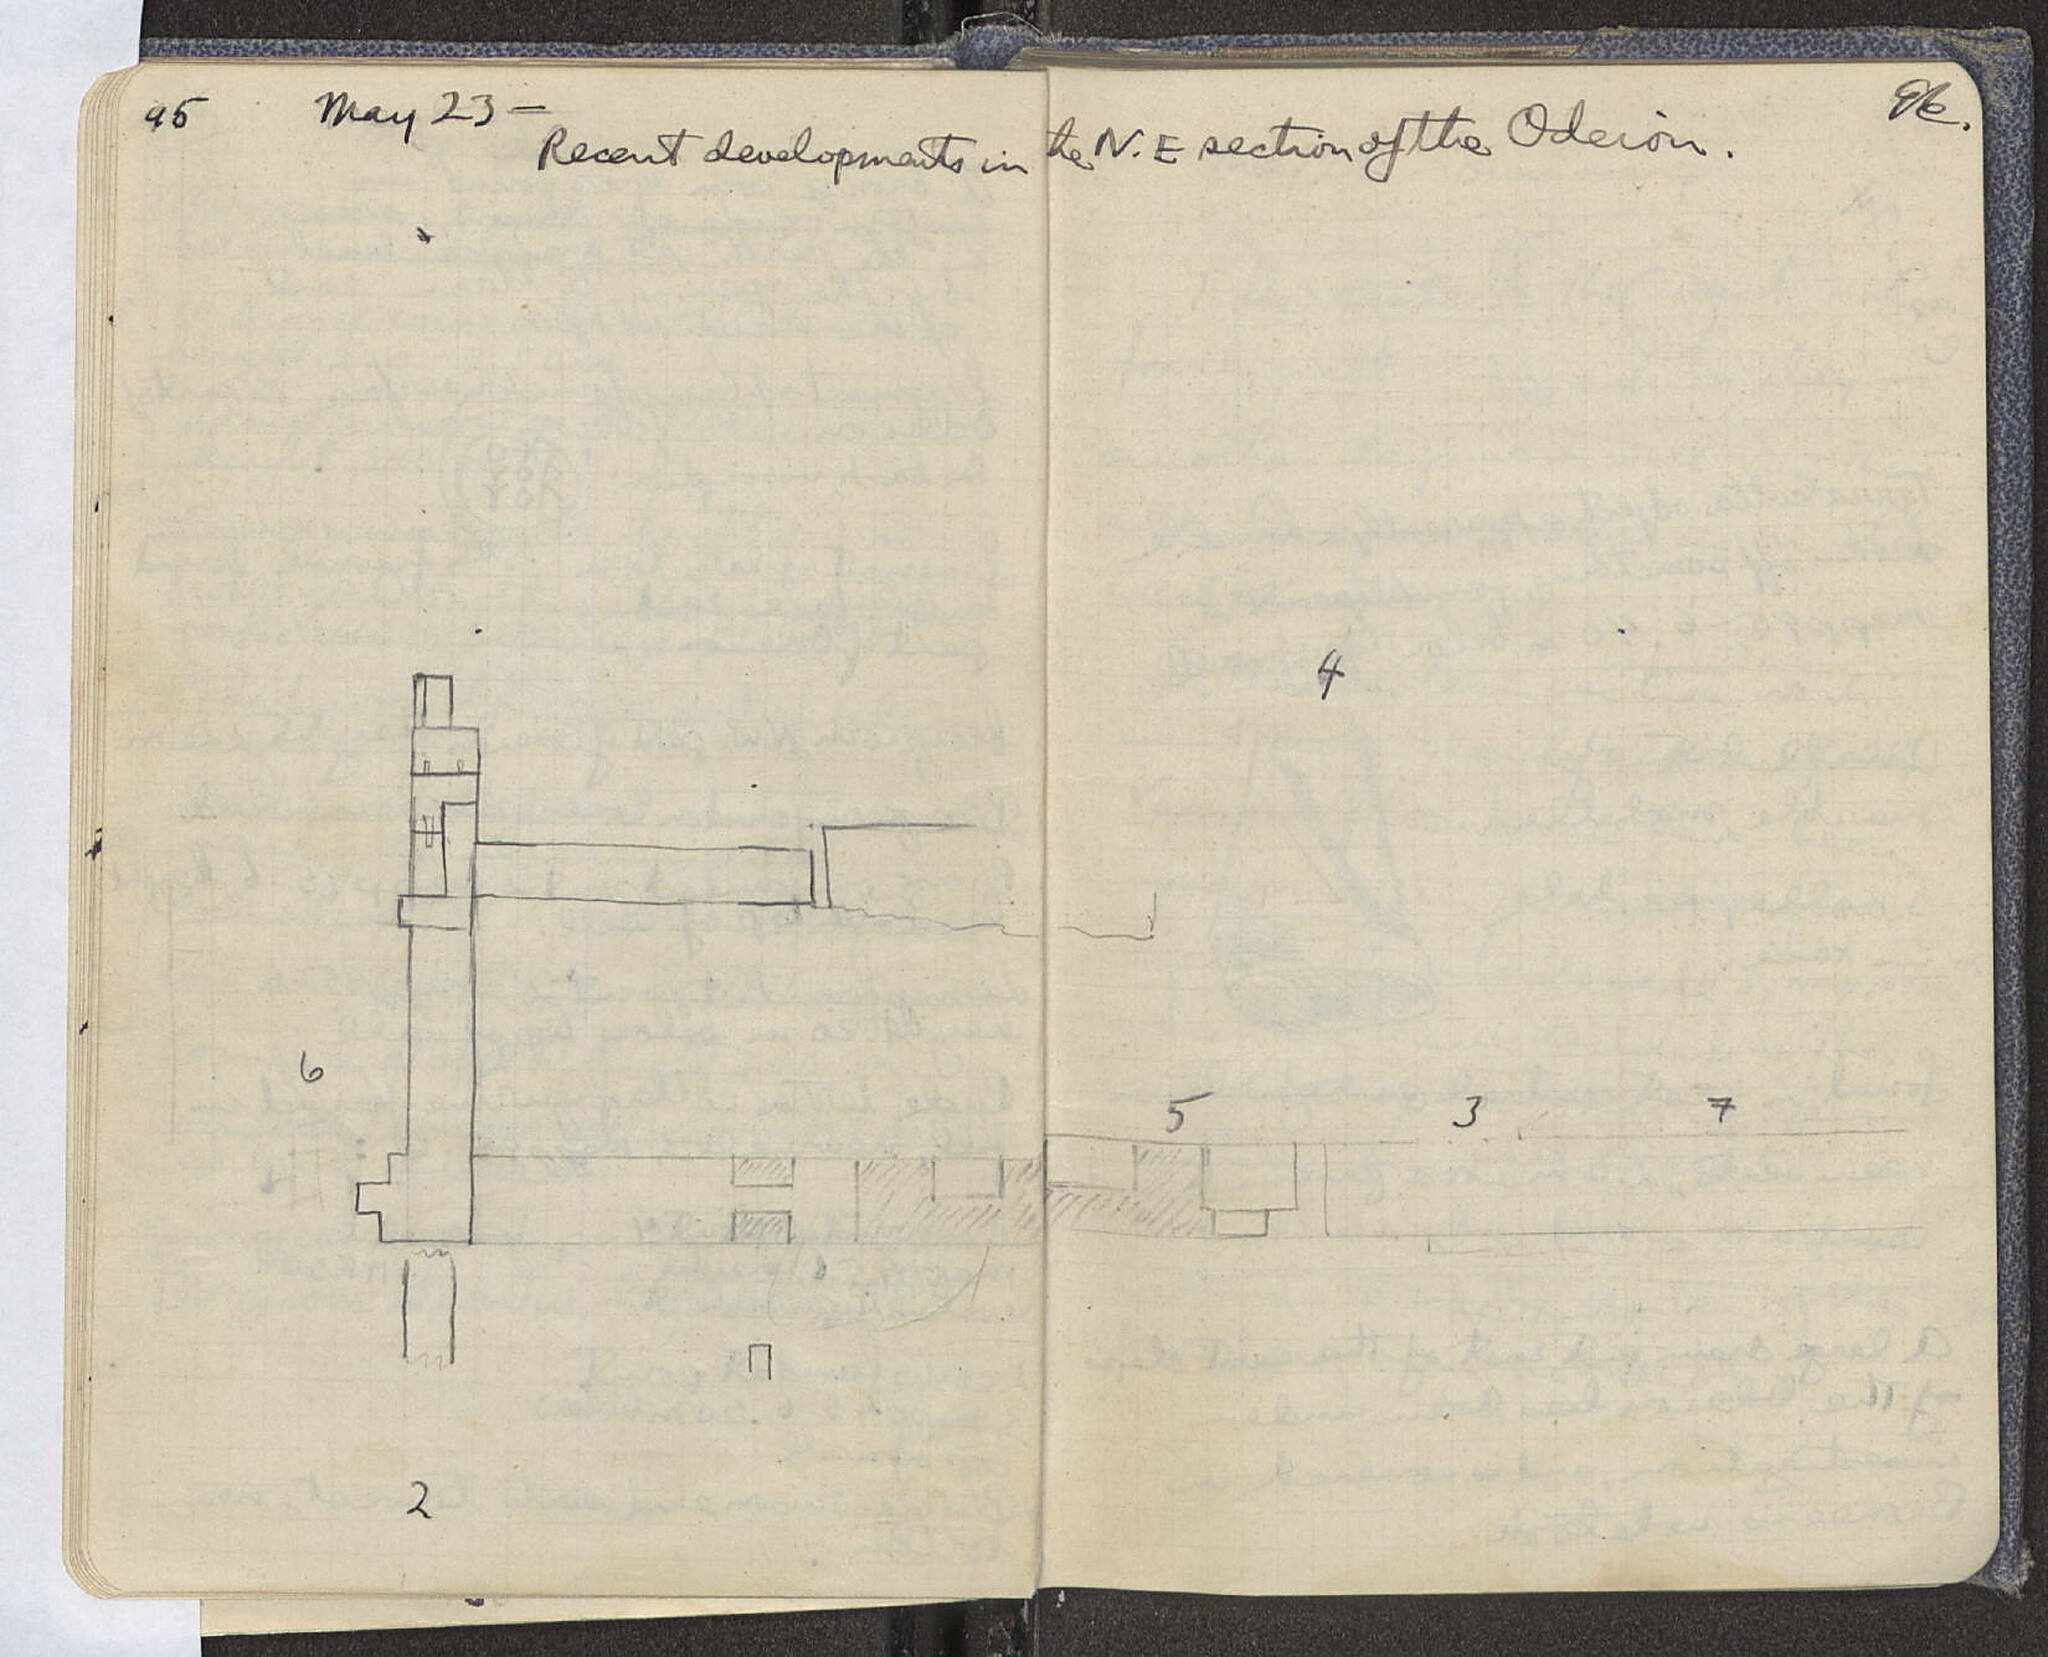 95 May 23 — 96.
Recent developments in the N.E section of the Odeion.
4
6
5 3 7
2